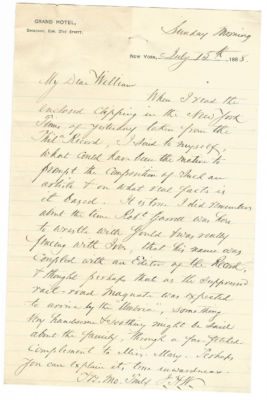 GRAND HOTEL,
Broadway, Cor. 31st Street.
Sunday Morning
NEW YORK, July 15th 1888
My Dear William
When I read the
enclosed Clipping in the New York
Times of yesterday taken from the
Phil. Record, I said to myself,
what could have been the motive to
prompt the composition of such an
article & on what real facts is
it based. I do remember
about the time Robt Garrett was here
to wrestle with Gould & was really
with Ives, that his name was
coupled with an Editor of the Record,
& thought perhaps that as the supposed
rail-road Magnate was expected
to arrive by the "Umbria", something
very handsome & soothing might be said
about the family, through a far-fetched
complement to Miss Mary. Perhaps
you can explain its true inwardness.